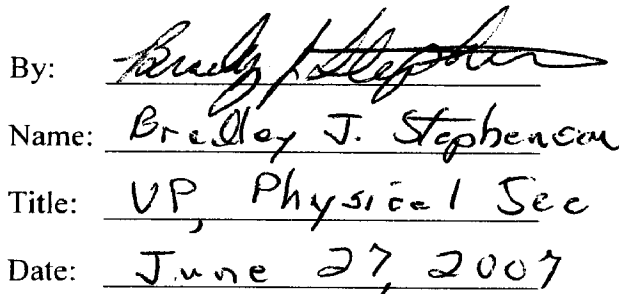 By: Bradley J Stephenson
Name: Bradley J. Stephenson
Title: VP, Physical Sec
Date: June 27, 2007